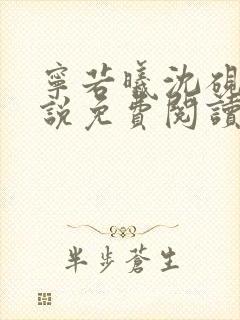 寧若曦沈硯
說免費閱讀
半步蒼生